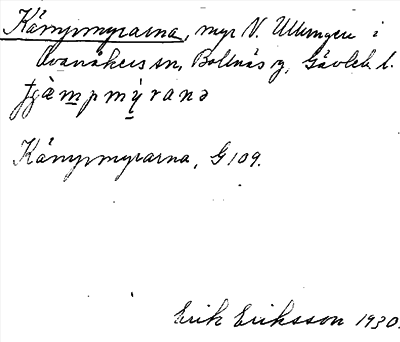 Kämpmyrarna, myr V. Ullungen i
Ovanåkers sn, Bollnäs rg, Gävleb. l.
kämpmyranə
Kämpmyrarna, G 109.
Erik Eriksson 1930.